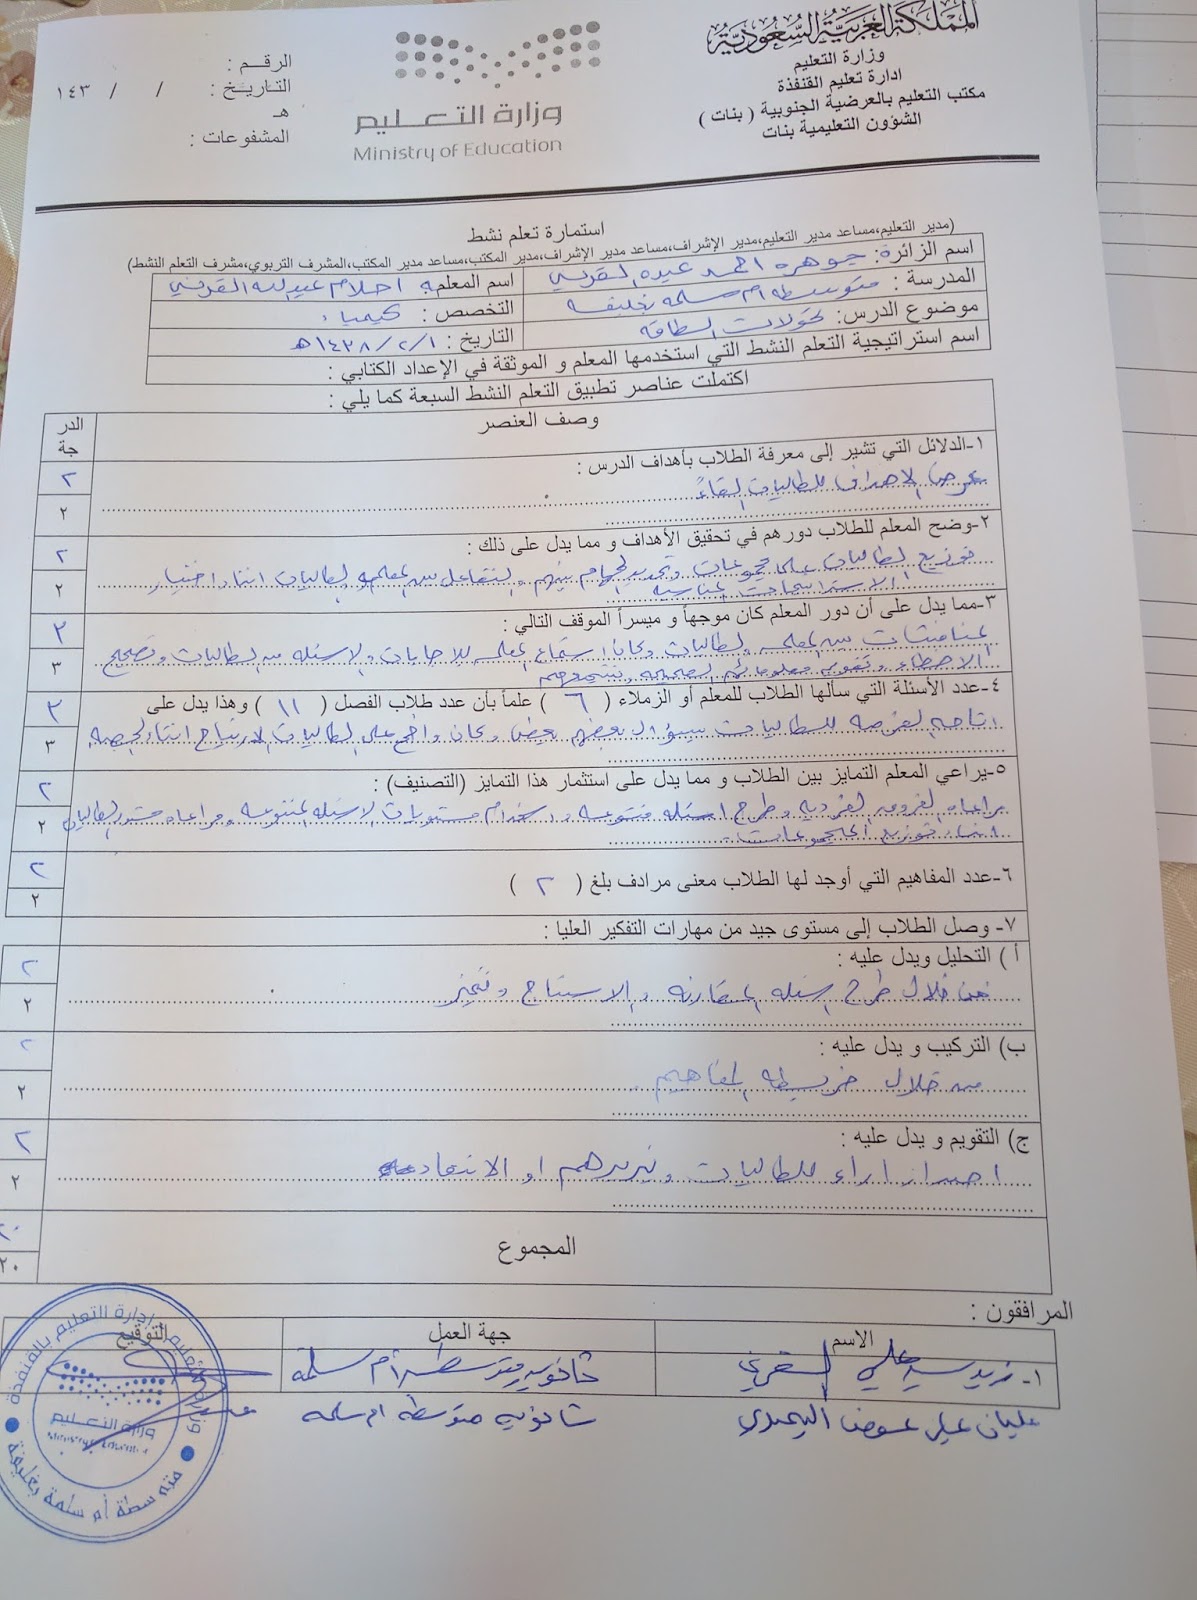 المملكة العربية السعودية
وزارة التعليم
ادارة تعليم القنفذة
مكتب التعليم بالعرضية الجنوبية ( بنات )
الشؤون التعليمية بنات
وزارة التعليم
Ministry of Education
الرقم :
التاريخ : / / ١٤٣
هـ
المشفوعات :
استمارة تعلم نشط
(مدير التعليم،مساعد مدير التعليم،مدير الإشراف،مساعد مدير الإشراف،مدير المكتب،مساعد مدير المكتب،المشرف التربوي،مشرف التعلم النشط)
اسم الزائرة: جوهره احمد عبده القرني
اسم المعلمه احلام عبدالله القرني
المدرسة : متوسطه ام سلمه بغليفه
التخصص : كيمياء
موضوع الدرس: تحولات الطاقه
التاريخ : ١٤٣٨/٢/١هـ
اسم استراتيجية التعلم النشط التي استخدمها المعلم و الموثقة في الإعداد الكتابي :
اكتملت عناصر تطبيق التعلم النشط السبعة كما يلي :
وصف العنصر
الدر
جة
١-الدلائل التي تشير إلى معرفة الطلاب بأهداف الدرس :
عرض الاهداف للطالبات
٢
٢
٢-وضح المعلم للطلاب دورهم في تحقيق الأهداف و مما يدل على ذلك :
توزيع الطالبات على مجموعات وتحديد المهام بينهم والتفاعل بين المعلمه والطالبات اثناء اختيار
الاستراتيجيات المناسبه
٢
٢
٣-مما يدل على أن دور المعلم كان موجهاً و ميسراً الموقف التالي :
المناقشات بين المعلمه والطالبات وكان استماع المعلمه للاجابات والاسئله من الطالبات وتصحيح
الاخطاء وتقويم معلوماتهم الصحيحه
٣
٣
٤-عدد الأسئلة التي سألها الطلاب للمعلم أو الزملاء ( ٦ ) علماً بأن عدد طلاب الفصل ( ١١ ) وهذا يدل على
اتاحه الفرصه للطالبات بسؤال بعضهم بعض وكان واضح على الطالبات الارتياح اثناء الحصه
٣
٣
٥-يراعي المعلم التمايز بين الطلاب و مما يدل على استثمار هذا التمايز (التصنيف) :
مراعاه الفروق الفرديه وطرح اسئله متنوعه واستخدام مستويات الاسئله المتنوعه ومراعاه مستوى الطالبات
اثناء توزيع المجموعات
٢
٢
٦-عدد المفاهيم التي أوجد لها الطلاب معنى مرادف بلغ ( ٢ )
٢
٢
٧- وصل الطلاب إلى مستوى جيد من مهارات التفكير العليا :
أ ) التحليل ويدل عليه :
من خلال طرح اسئله المقارنه والاستنتاج
٢
٢
ب) التركيب و يدل عليه :
من خلال خريطه المفاهيم
٢
٢
ج) التقويم و يدل عليه :
اصدار اراء للطالبات
٢
٢
المجموع
٢٠
٢٠
المرافقون :
الاسم
جهة العمل
التوقيع
١-
ثانويه ومتوسطه أم سلمة
علي عوض
ثانويه متوسطه ام سلمه
إدارة التعليم بالقنفذة
وزارة التعليم
Ministry of Education
متوسطة أم سلمة بغليفة